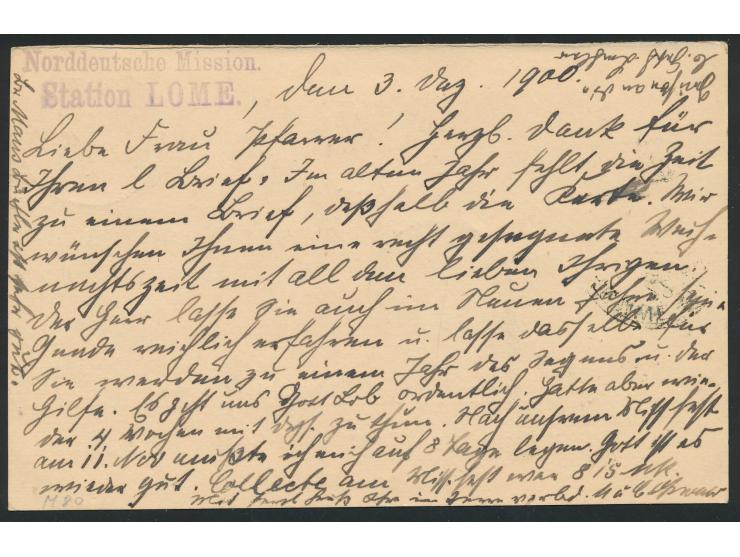 Norddeutsche Mission.
Station LOME.
, den 3. Dez. 1900.
Liebe Frau Pfarrer! Herzl. Dank für
Ihren l Brief. Im alten Jahr fehlt die Zeit
zu einem Brief, deßhalb die Karte. Wir
wünschen Ihnen eine recht gesegnete Weih-
nachtszeit mit all den lieben Ihrigen.
Der Herr lasse Sie auch im Neuen Jahre Seine
Gnade reichlich erfahren u. lasse dasselbe für
Sie werden zu einem Jahr des Segens u. der
Hilfe. Es geht uns Gott Lob ordentlich, hatte aber wie-
der 4 Wochen mit zu thun. Nach unserem Missfest
am 11. Nov mußte ich mich auf 8 Tage legen. Gott ist es
wieder gut. Collecte am Missfest war 815 Mk.
Mit herzl im Herrn verbd.
M 80